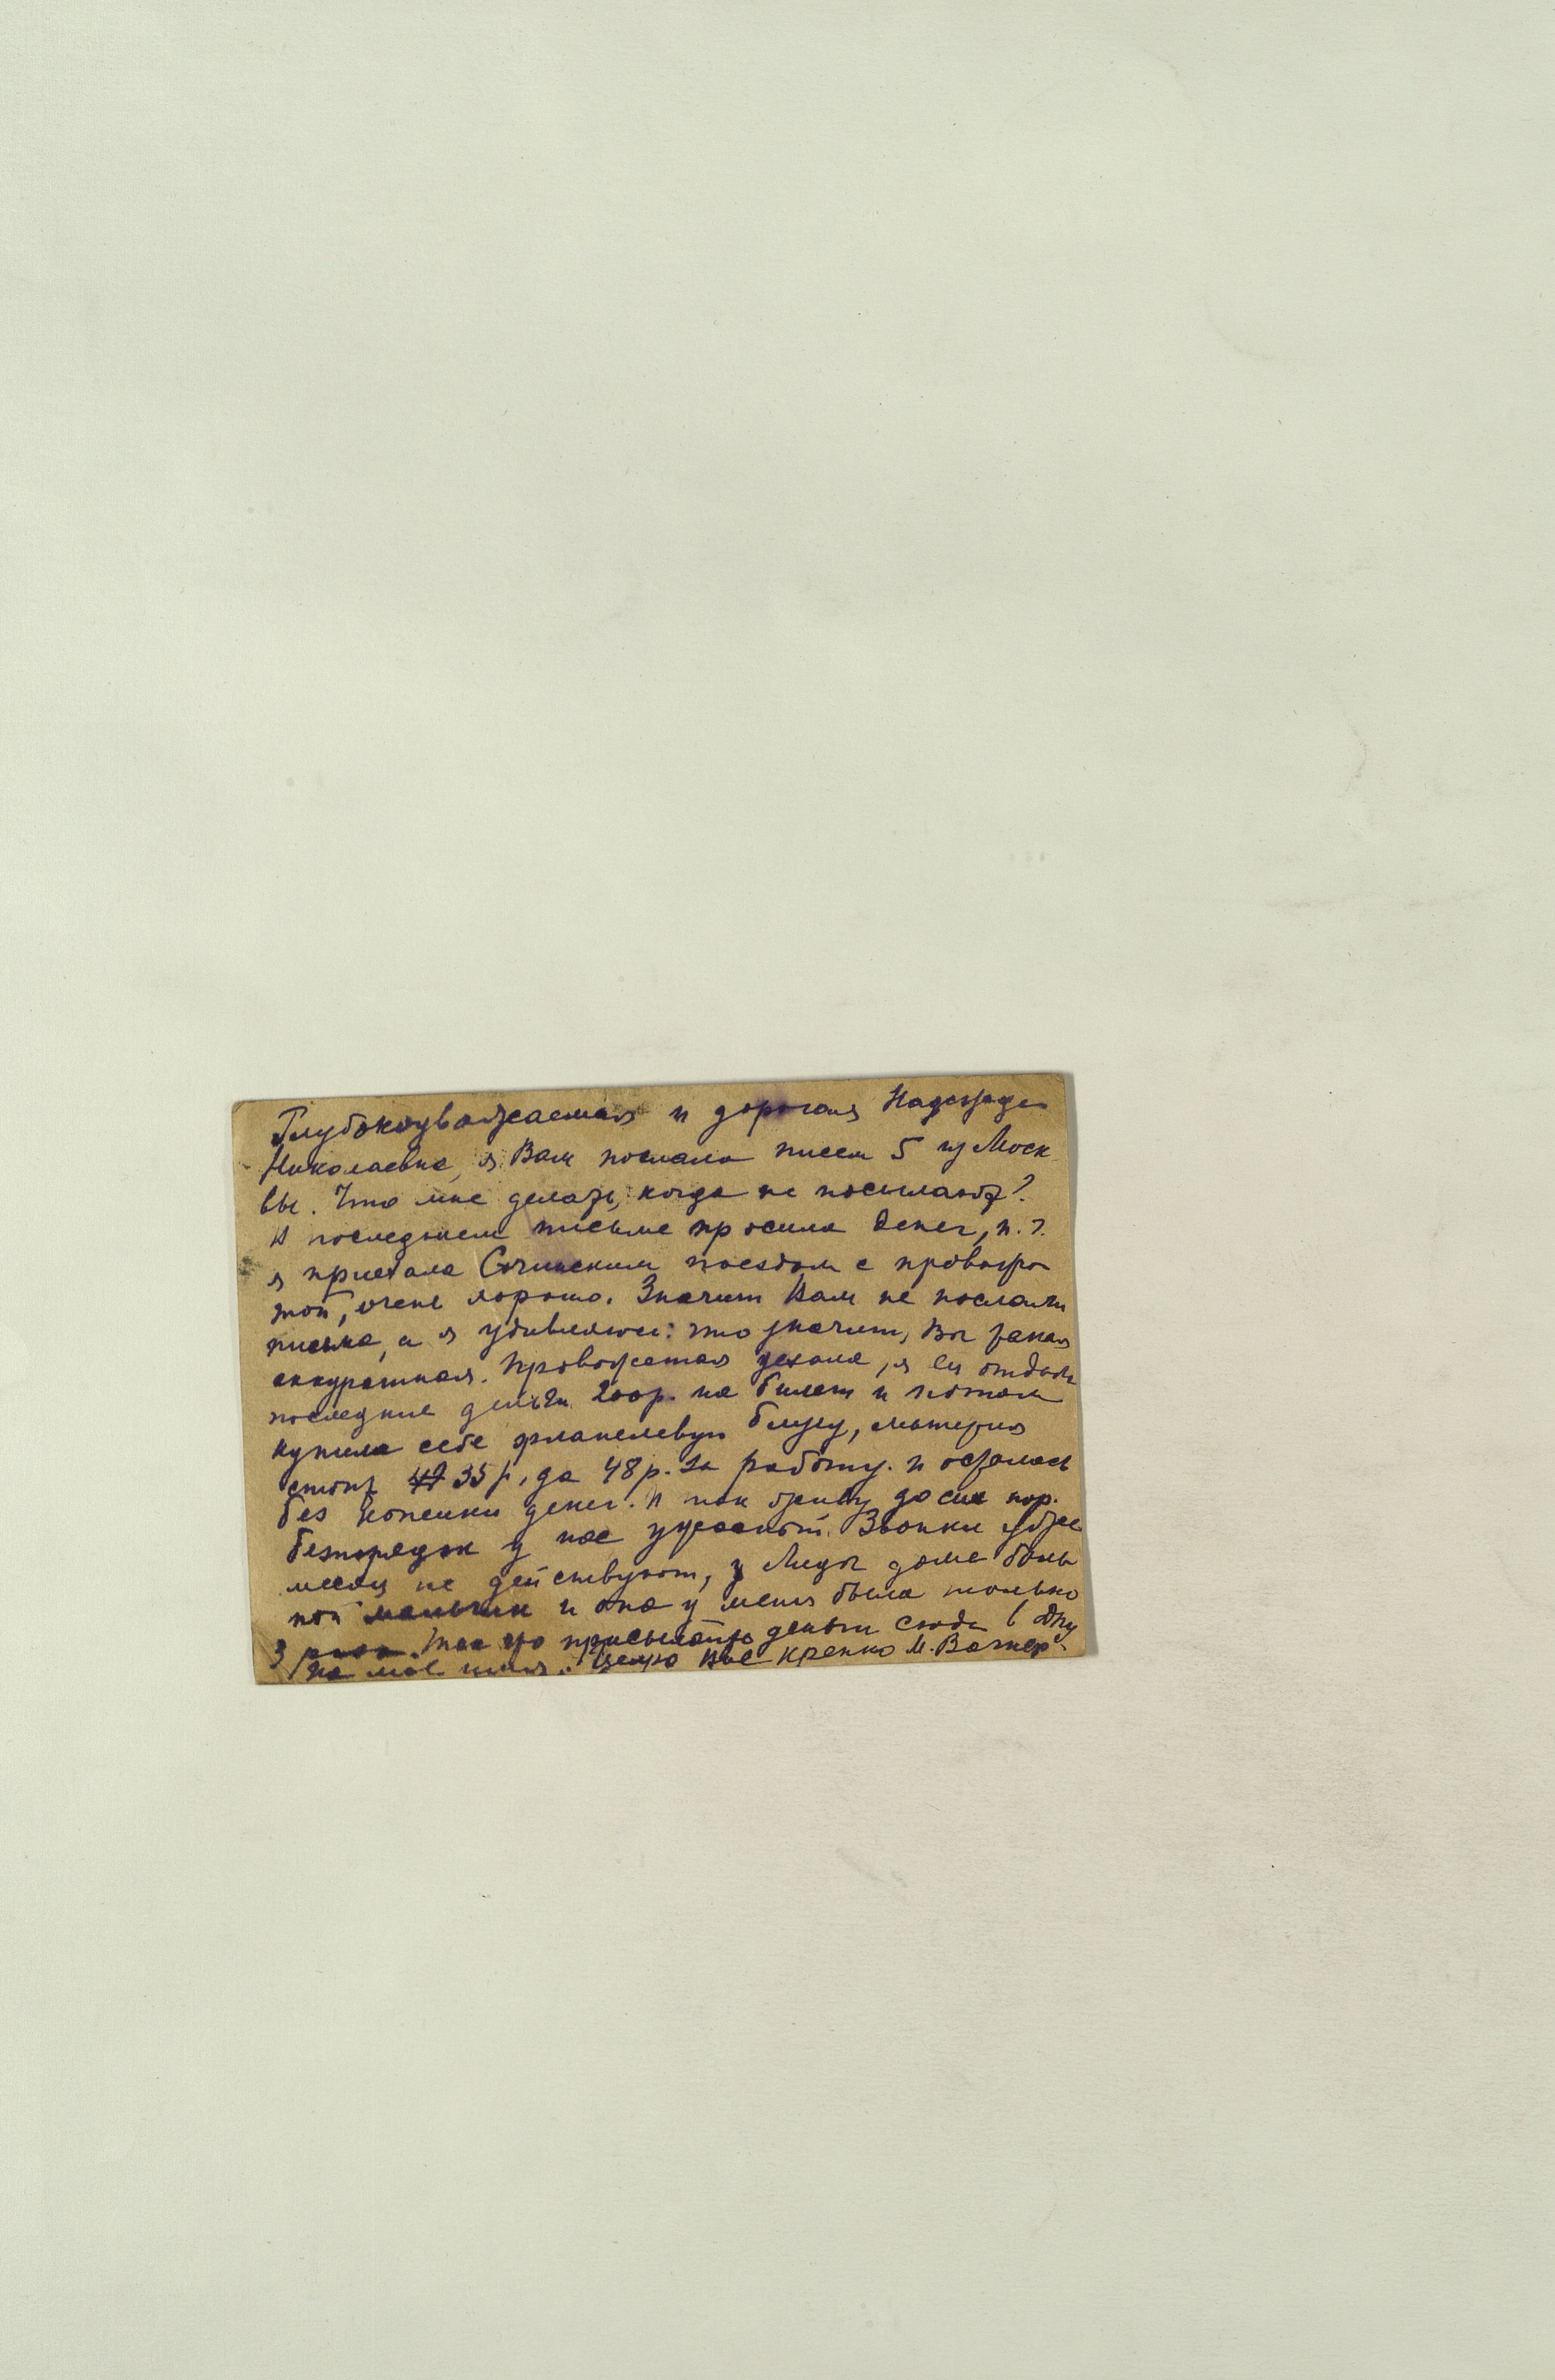 Глубокоуважаемая и дорогая Надежда
Николаевна, я Вам послала писем 5 из Моск
вы. Что мне делать, когда не посылают?
В последнем письме просила денег, п. ч.
я приехала Сочинским поездом с провожа
той, очень хорошо. Значит Вам не послали
письма, а я удивляюсь: что значит, Вы такая
аккуратная. Провожатая уехала, я ей отдала
последние деньги 200 р. на билет и потом
купила себе фланелевую блузу, материя
стоит 35 р, да 48 р. за работу. и осталась
без копейки денег. И так живу до сих пор.
безпорядок у нас ужасный. Звонки уже
месяц не действуют, у Лизы дома боль
ной мальчик и она у меня была только
3 раза. Так что присылайте деньги сюда в
на мое имя. Целую Вас крепко М. Вагнер